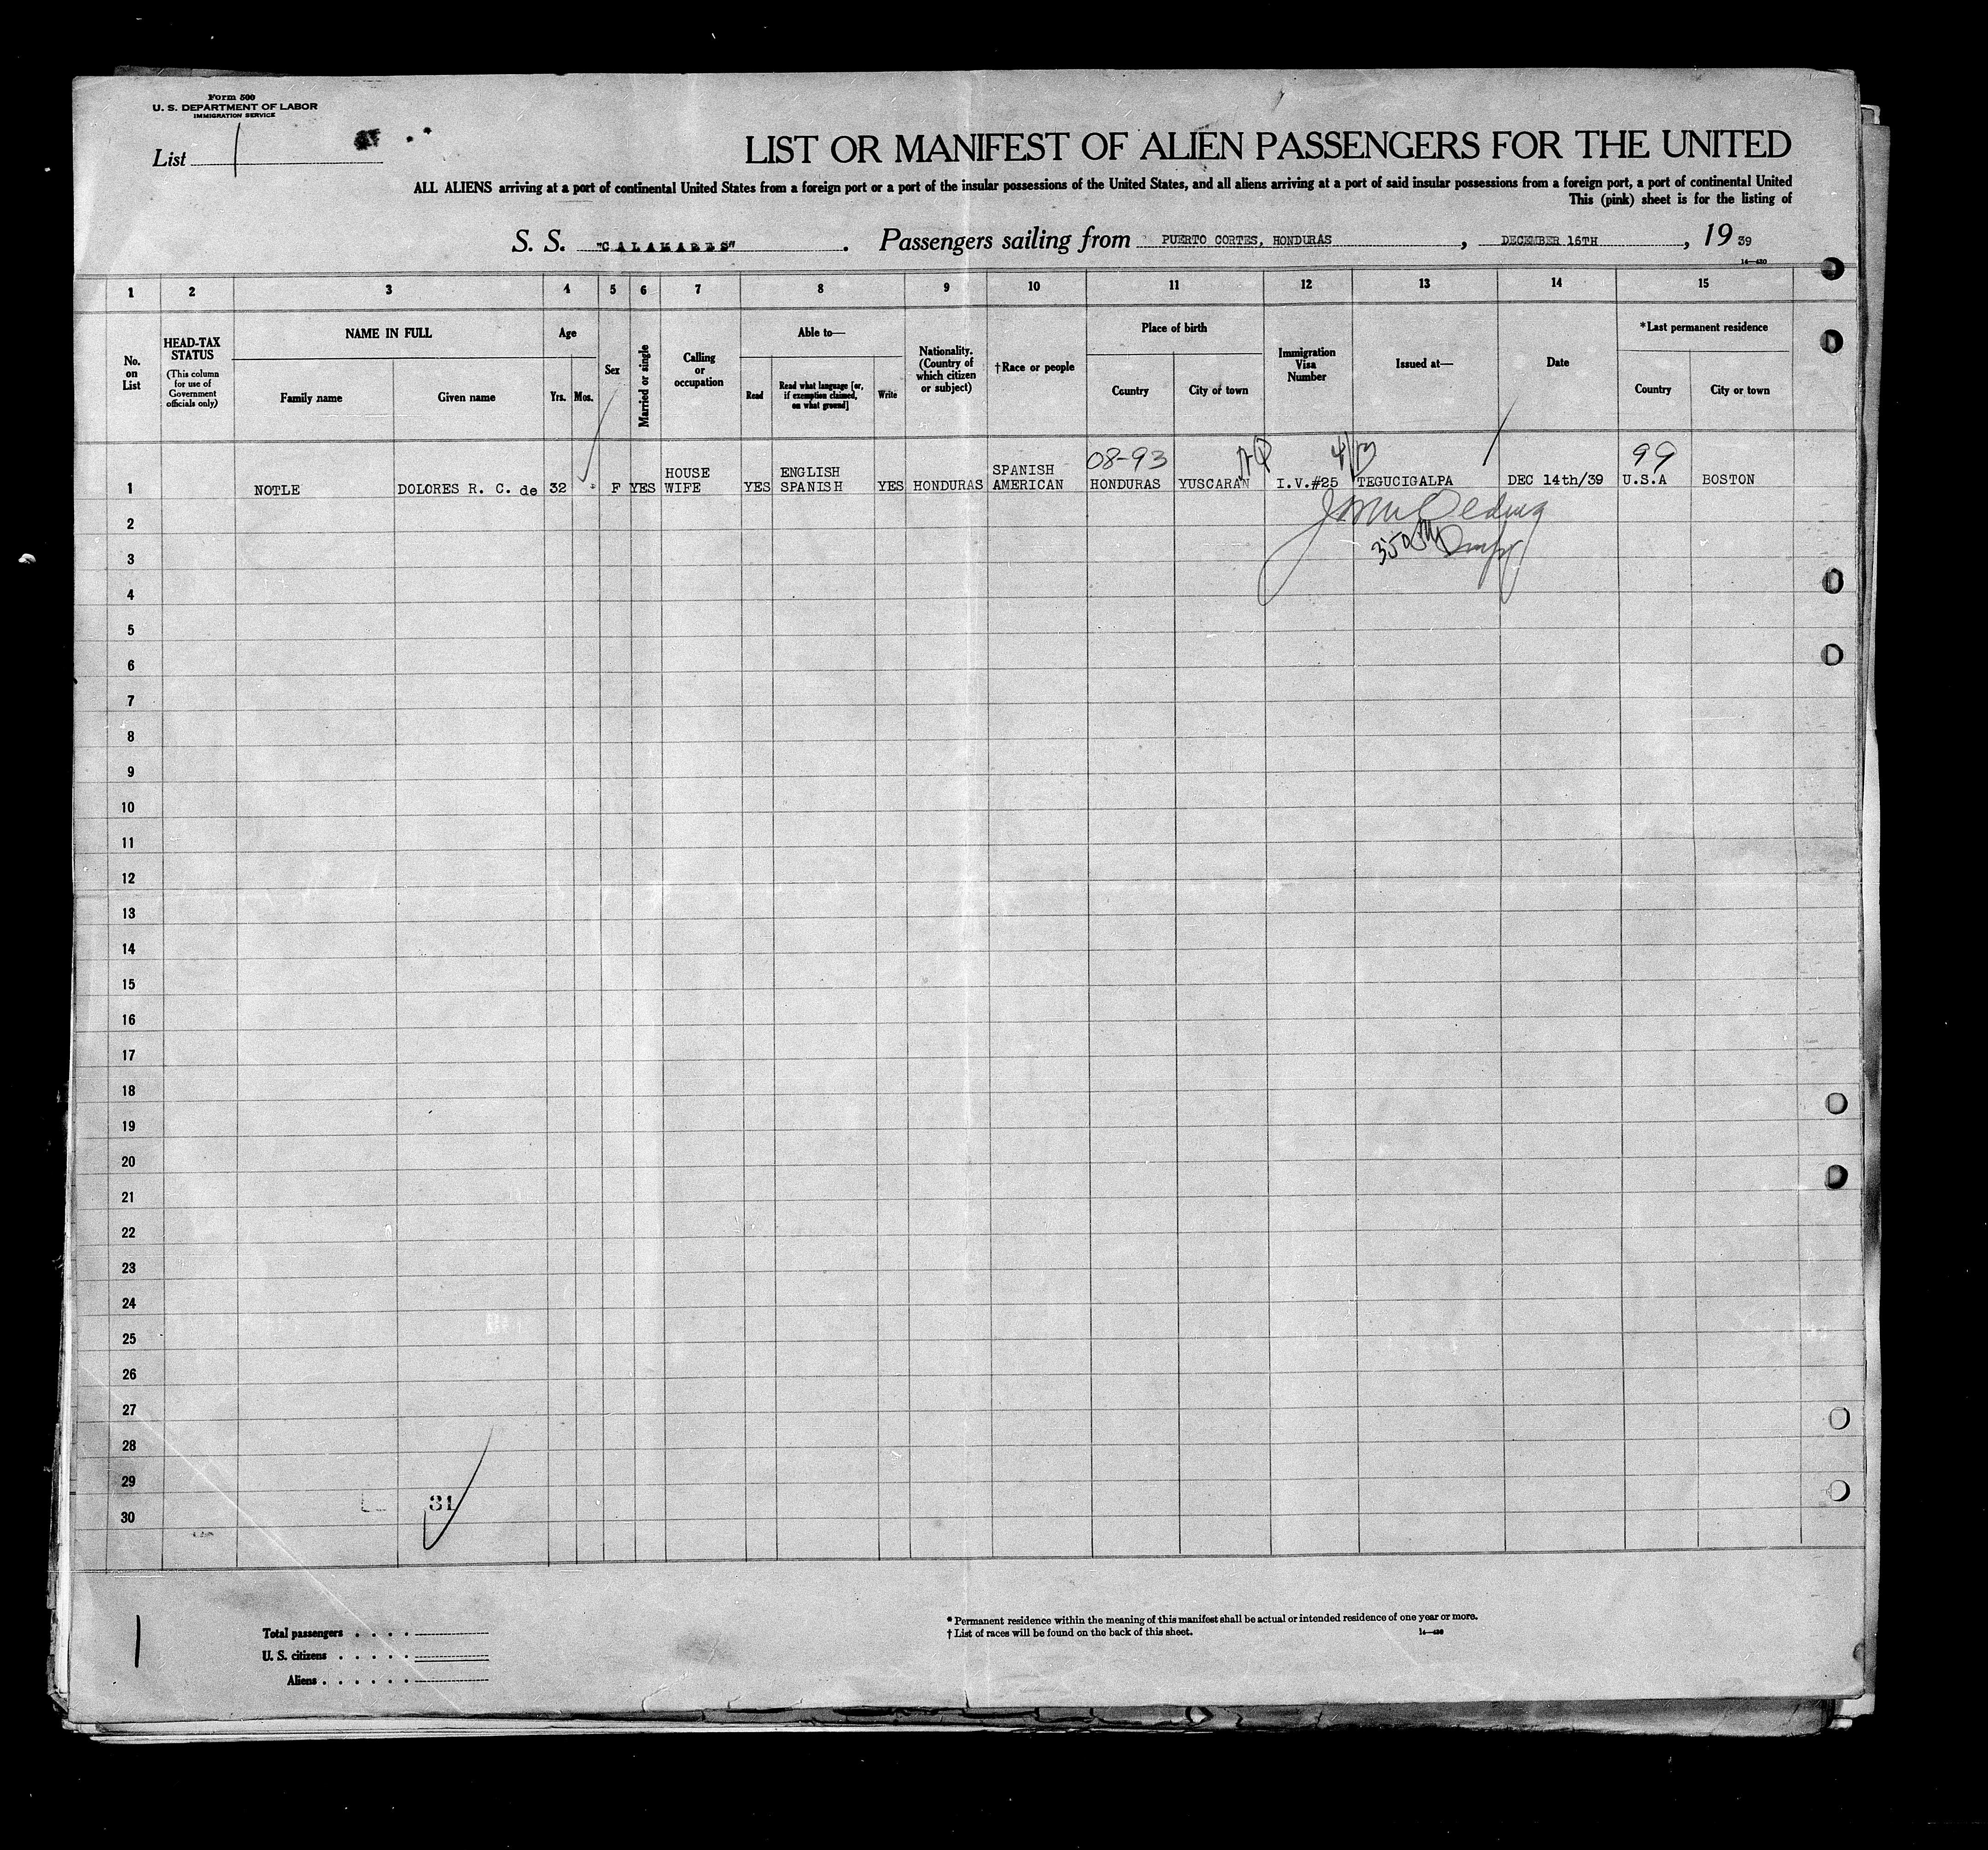 Form 500
U. S. DEPARTMENT OF LABOR
IMMIGRATION SERVICE
List 1
LIST OR MANIFEST OF ALIEN PASSENGERS FOR THE UNITED
ALL ALIENS arriving at a port of continental United States from a foreign port or a port of the insular possessions of the United States, and all aliens arriving at a port of said insular possessions from a foreign port, a port of continental United
This (pink) sheet is for the listing of
S. S. "CALAMARES". Passengers sailing from PUERTO CORTES, HONDURAS, DECEMBER 16TH, 19 39
14—430
1 2 3 4 5 6 7 8 9 10 11 12 13 14 15
No. on List
HEAD-TAX STATUS (This column for use of Government officials only)
NAME IN FULL
Family name Given name
Age
Yrs. Mos.
Sex
Married or single
Calling or occupation
Able to—
Read Read what language [or, if exemption claimed, on what ground] Write
Nationality. (Country of which citizen or subject)
†Race or people
Place of birth
Country City or town
Immigration Visa Number
Issued at—
Date
*Last permanent residence
Country City or town
08-93 99
1 NOTLE DOLORES R. C. de 32 F YES HOUSE WIFE YES ENGLISH SPANISH YES HONDURAS SPANISH AMERICAN HONDURAS YUSCARAN I.V.#25 TEGUCIGALPA DEC 14th/39 U.S.A BOSTON
2
3
4
5
6
7
8
9
10
11
12
13
14
15
16
17
18
19
20
21
22
23
24
25
26
27
28
29
31
30
Total passengers . . . .
U. S. citizens . . . . .
Aliens . . . . . .
* Permanent residence within the meaning of this manifest shall be actual or intended residence of one year or more.
† List of races will be found on the back of this sheet.
14—430